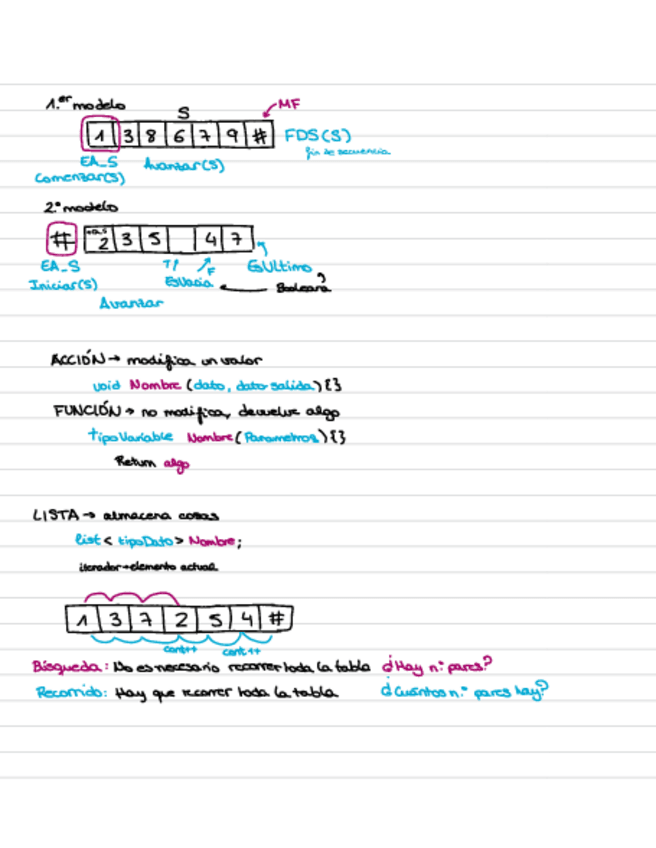 1.er modelo
S
MF
1 3 8 6 7 9 # FDS(S)
fin de secuencia
EA_S Avanzar(S)
Comenzar(S)
2º modelo
# 2 3 5 4 7
EA_S T/F EsÚltimo
Iniciar(S) EsVacia Booleano
Avanzar
ACCIÓN → modifica un valor
void Nombre (dato, dato salida) { }
FUNCIÓN → no modifica, devuelve algo
tipoVariable Nombre (Parametros) { }
Return algo
LISTA → almacena cosas
list < tipoDato > Nombre;
iterador→elemento actual
1 3 7 2 5 4 #
cont++ cont++
Búsqueda: No es necesario recorrer toda la tabla ¿Hay n.º pares?
Recorrido: Hay que recorrer toda la tabla ¿Cuántos n.º pares hay?